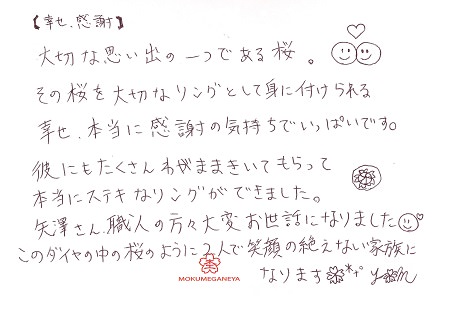 【幸せ、感謝】
大切な思い出の一つである桜。
その桜を大切なリングとして身に付けられる
幸せ、本当に感謝の気持ちでいっぱいです。
彼にもたくさんわがままきいてもらって
本当にステキなリングができました。
矢澤さん、職人の方々大変お世話になりました
このダイヤの中の桜のように2人で笑顔の絶えない家族に
なります
MOKUMEGANEYA